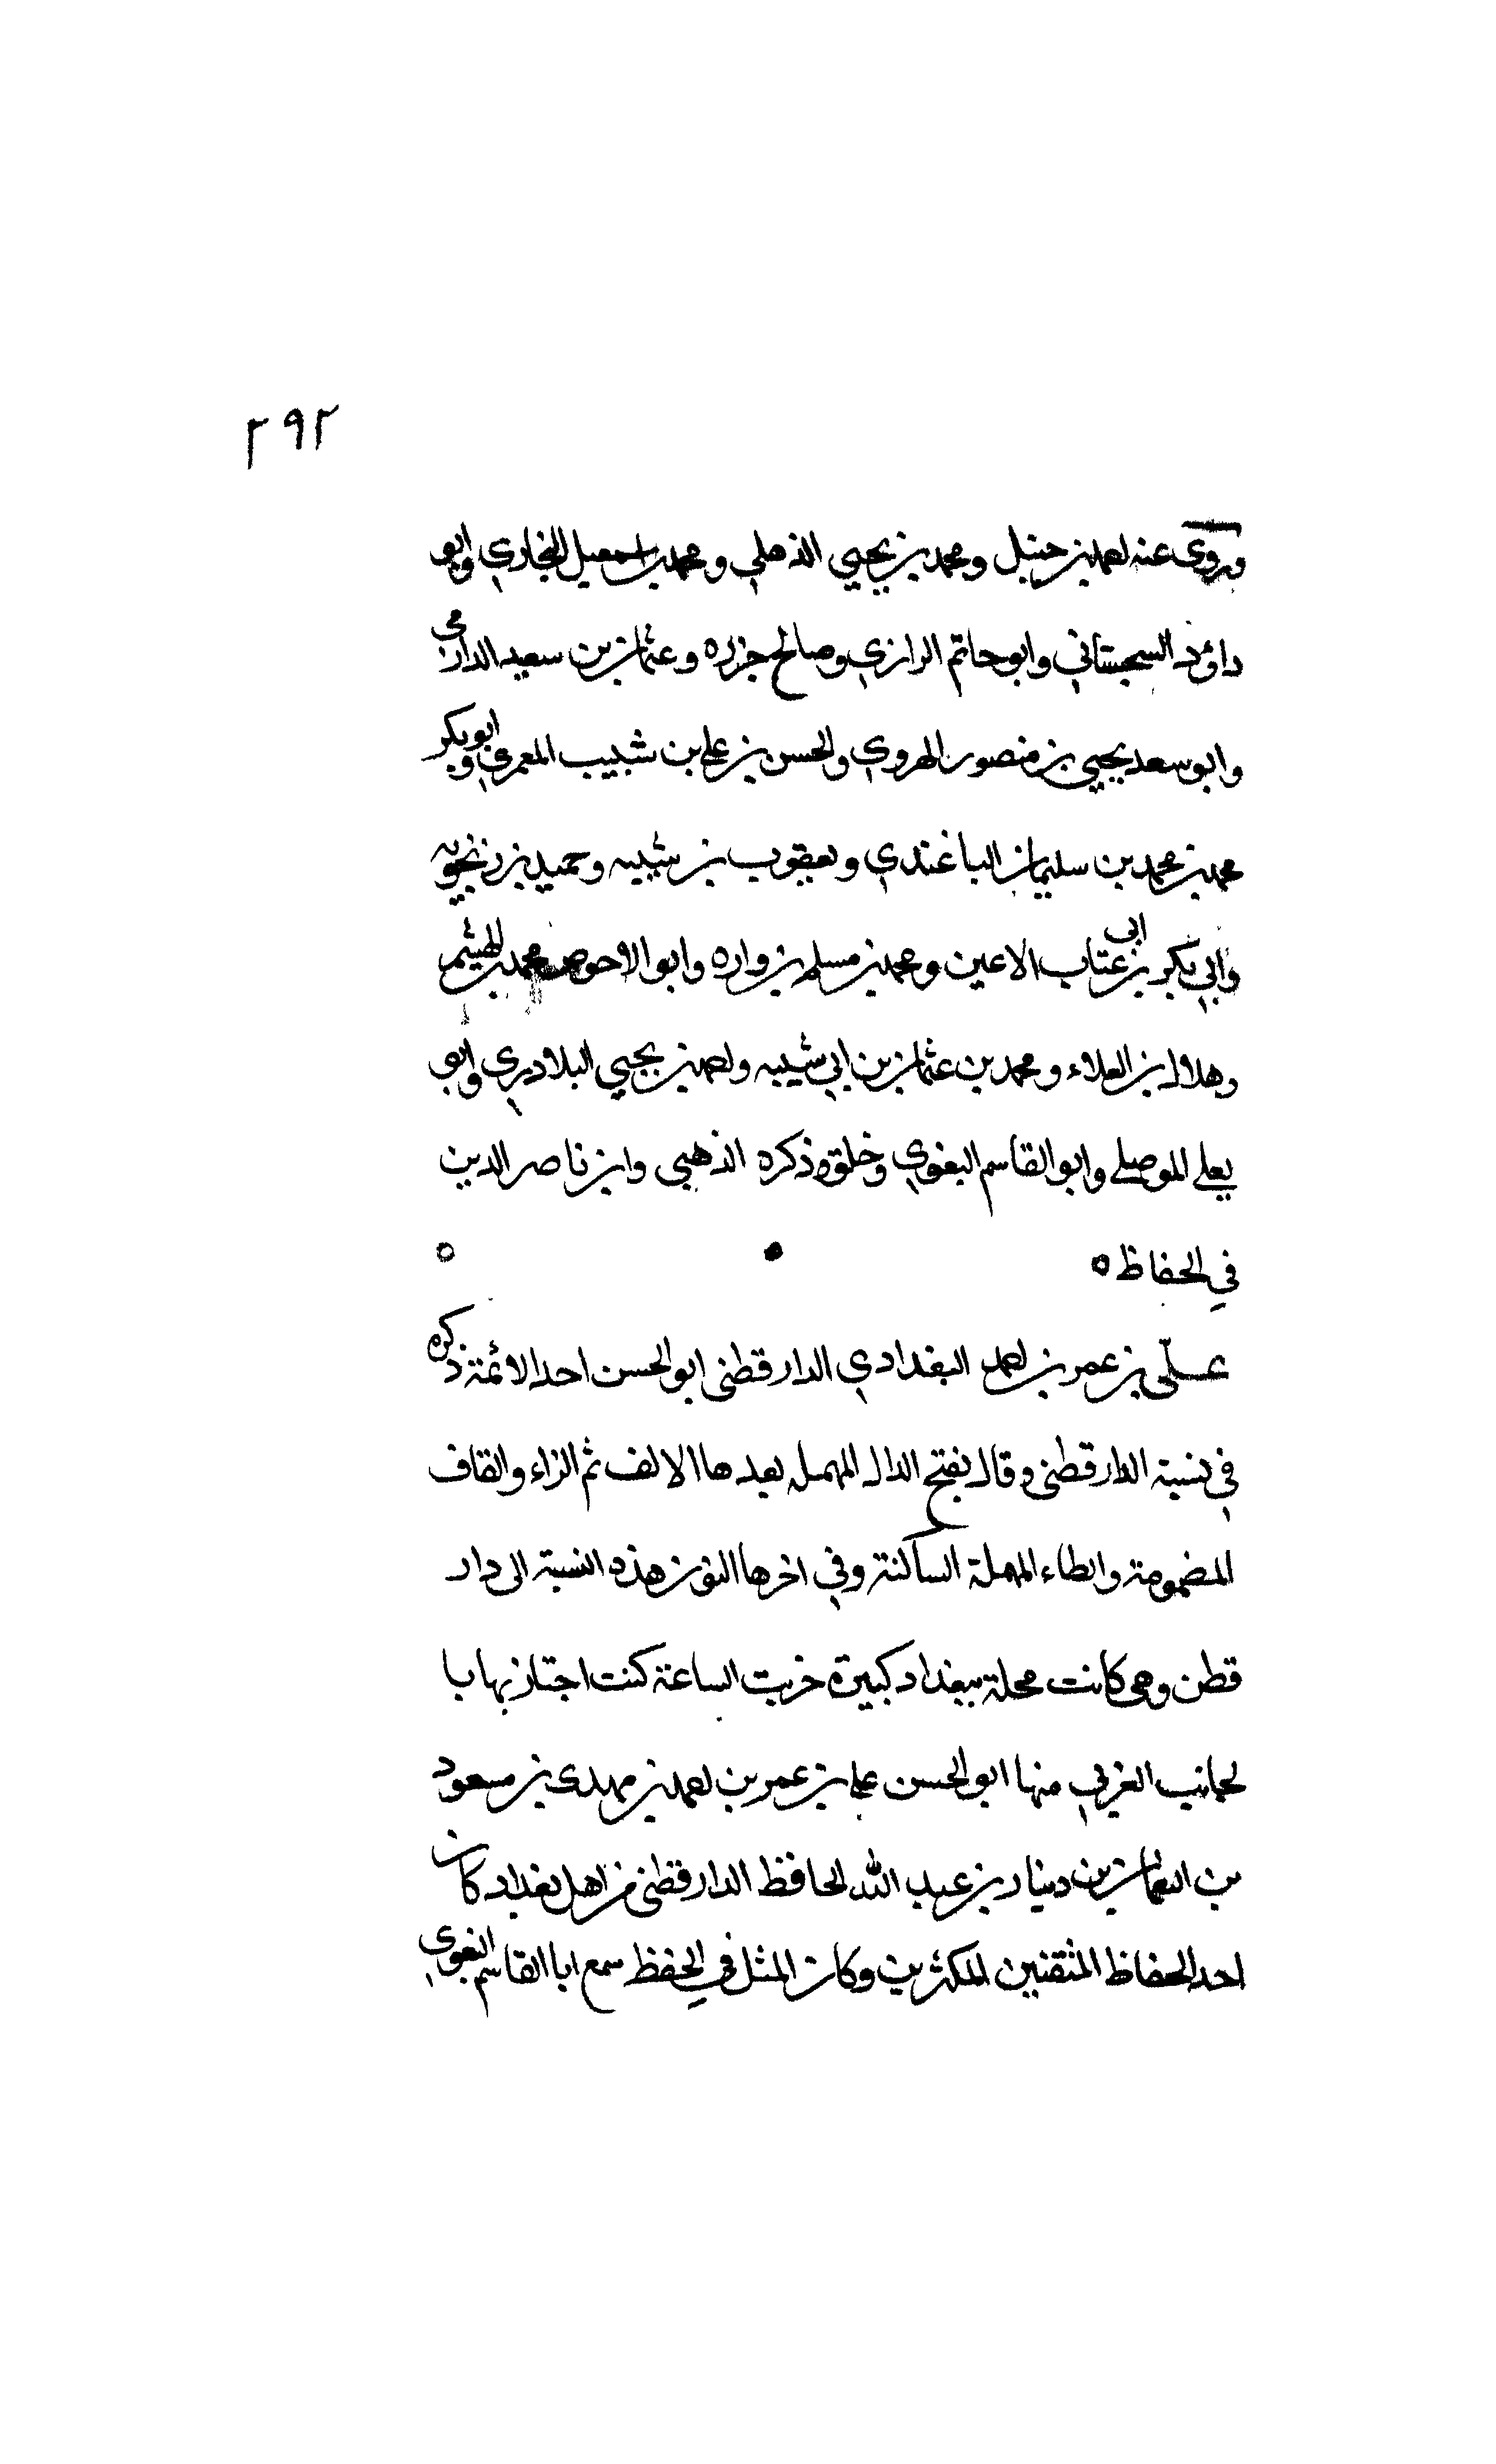 ٢٩٢
وروى عنه احمد بن حنبل ومحمد بن يحيي الذهلي ومحمد بن اسمعيل البخاري وابو
داؤد السجستاني وابو حاتم الرازي وصالح جزره وعثمان بن سعيد الدارمي
وابو سعد يحيي بن منصور الهروي والحسن بن علي بن شبيب المعمري وابو بكر
محمد بن محمد بن سليمان الباغندي ويعقوب بن شيبه وحميد بن زنجويه
وابي بكر بن ابي عتاب الاعين ومحمد بن مسلم بن واره وابو الاحوص محمد بن الهيثم
وهلال بن العلاء ومحمد بن عثمان بن ابي شيبه واحمد بن يحيي البلادري وابو
يعلي الموصلي وابو القاسم البغوي وخلق وذكره الذهبي وابن ناصر الدين
في الحفاظ ٥
علي بن عمر بن احمد البغدادي الدارقطني ابو الحسن احد الائمة ذكره
في نسبة الدارقطني وقال بفتح الدال المهمله بعدها الالف ثم الراء والقاف
المضمومة والطاء المهملة الساكنة وفي اخرها النون هذه النسبة الى دار
قطن وهى كانت محلة ببغداد كبيرة خربت الساعة كنت اجتاز بها با
لجانب الغربي منها ابو الحسن علي بن عمر بن احمد بن مهدى بن مسعود
بن النعمان بن دينار بن عبد الله الحافظ الدارقطني من اهل بغداد كان
احد الحفاظ المتقنين المكثرين وكان المثل في الحفظ سمع ابا القاسم البغوي